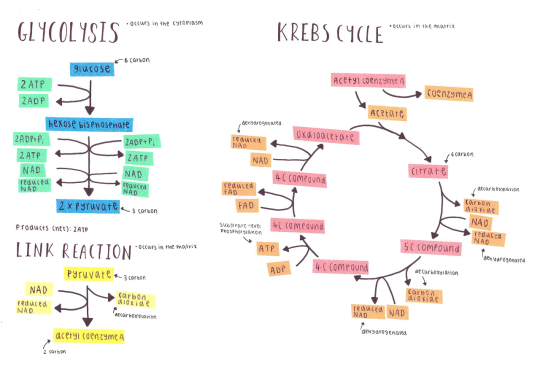 GLYCOLYSIS
• occurs in the cytoplasm
glucose
6 carbon
2 ATP
2 ADP
hexose bisphosphate
2ADP+Pi
2 ATP
NAD
reduced
NAD
2ADP+Pi
2 ATP
NAD
reduced
NAD
2 x pyruvate
3 carbon
Products (net): 2ATP
LINK REACTION
• occurs in the matrix
pyruvate
3 carbon
NAD
reduced
NAD
carbon
dioxide
decarboxylation
acetyl coenzyme A
2 carbon
KREBS CYCLE
• occurs in the matrix
acetyl coenzyme A
coenzyme A
acetate
oxaloacetate
citrate
6 carbon
decarboxylation
carbon
dioxide
NAD
reduced
NAD
dehydrogenated
5C compound
decarboxylation
carbon
dioxide
reduced
NAD
NAD
dehydrogenated
4C compound
substrate-level
phosphorylation
ATP
ADP
4C compound
reduced
FAD
FAD
4C compound
dehydrogenated
reduced
NAD
NAD